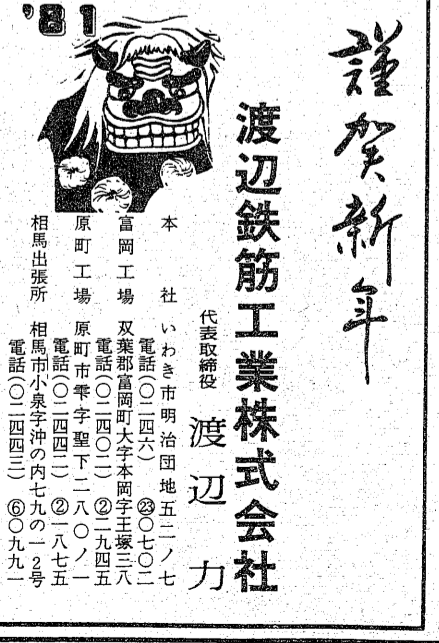 '81
謹賀新年
渡辺鉄筋工業株式会社
代表取締役 渡辺力
本社 いわき市明治団地五二ノ七
電話(〇二四六)㉓〇七〇二
富岡工場 双葉郡富岡町大字本岡字王塚三八
電話(〇二四〇二)②二九四五
原町工場 原町市雫字聖下二八〇ノ一
電話(〇二四四二)②一八七五
相馬出張所 相馬市小泉字沖の内七九の一2号
電話(〇二四四三)⑥〇九九一